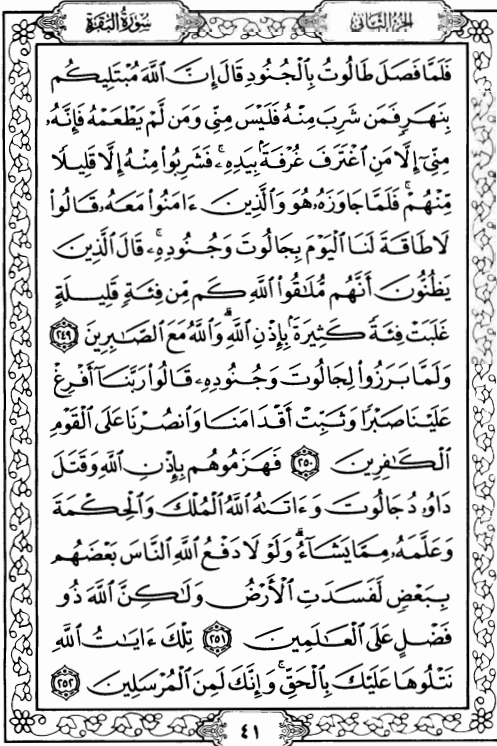 سُورَةُ البَقَرَةِ
الجُزْءُ الثَّانِي
فَلَمَّا فَصَلَ طَالُوتُ بِٱلۡجُنُودِ قَالَ إِنَّ ٱللَّهَ مُبۡتَلِيكُم
بِنَهَرٖ فَمَن شَرِبَ مِنۡهُ فَلَيۡسَ مِنِّي وَمَن لَّمۡ يَطۡعَمۡهُ فَإِنَّهُۥ
مِنِّيٓ إِلَّا مَنِ ٱغۡتَرَفَ غُرۡفَةَۢ بِيَدِهِۦۚ فَشَرِبُواْ مِنۡهُ إِلَّا قَلِيلٗا
مِّنۡهُمۡۚ فَلَمَّا جَاوَزَهُۥ هُوَ وَٱلَّذِينَ ءَامَنُواْ مَعَهُۥ قَالُواْ
لَا طَاقَةَ لَنَا ٱلۡيَوۡمَ بِجَالُوتَ وَجُنُودِهِۦۚ قَالَ ٱلَّذِينَ
يَظُنُّونَ أَنَّهُم مُّلَٰقُواْ ٱللَّهِ كَم مِّن فِئَةٖ قَلِيلَةٍ
غَلَبَتۡ فِئَةٗ كَثِيرَةَۢ بِإِذۡنِ ٱللَّهِۗ وَٱللَّهُ مَعَ ٱلصَّٰبِرِينَ ٢٤٩
وَلَمَّا بَرَزُواْ لِجَالُوتَ وَجُنُودِهِۦ قَالُواْ رَبَّنَآ أَفۡرِغۡ
عَلَيۡنَا صَبۡرٗا وَثَبِّتۡ أَقۡدَامَنَا وَٱنصُرۡنَا عَلَى ٱلۡقَوۡمِ
ٱلۡكَٰفِرِينَ ٢٥٠ فَهَزَمُوهُم بِإِذۡنِ ٱللَّهِ وَقَتَلَ
دَاوُۥدُ جَالُوتَ وَءَاتَىٰهُ ٱللَّهُ ٱلۡمُلۡكَ وَٱلۡحِكۡمَةَ
وَعَلَّمَهُۥ مِمَّا يَشَآءُۗ وَلَوۡلَا دَفۡعُ ٱللَّهِ ٱلنَّاسَ بَعۡضَهُم
بِبَعۡضٖ لَّفَسَدَتِ ٱلۡأَرۡضُ وَلَٰكِنَّ ٱللَّهَ ذُو
فَضۡلٍ عَلَى ٱلۡعَٰلَمِينَ ٢٥١ تِلۡكَ ءَايَٰتُ ٱللَّهِ
نَتۡلُوهَا عَلَيۡكَ بِٱلۡحَقِّۚ وَإِنَّكَ لَمِنَ ٱلۡمُرۡسَلِينَ ٢٥٢
٤١